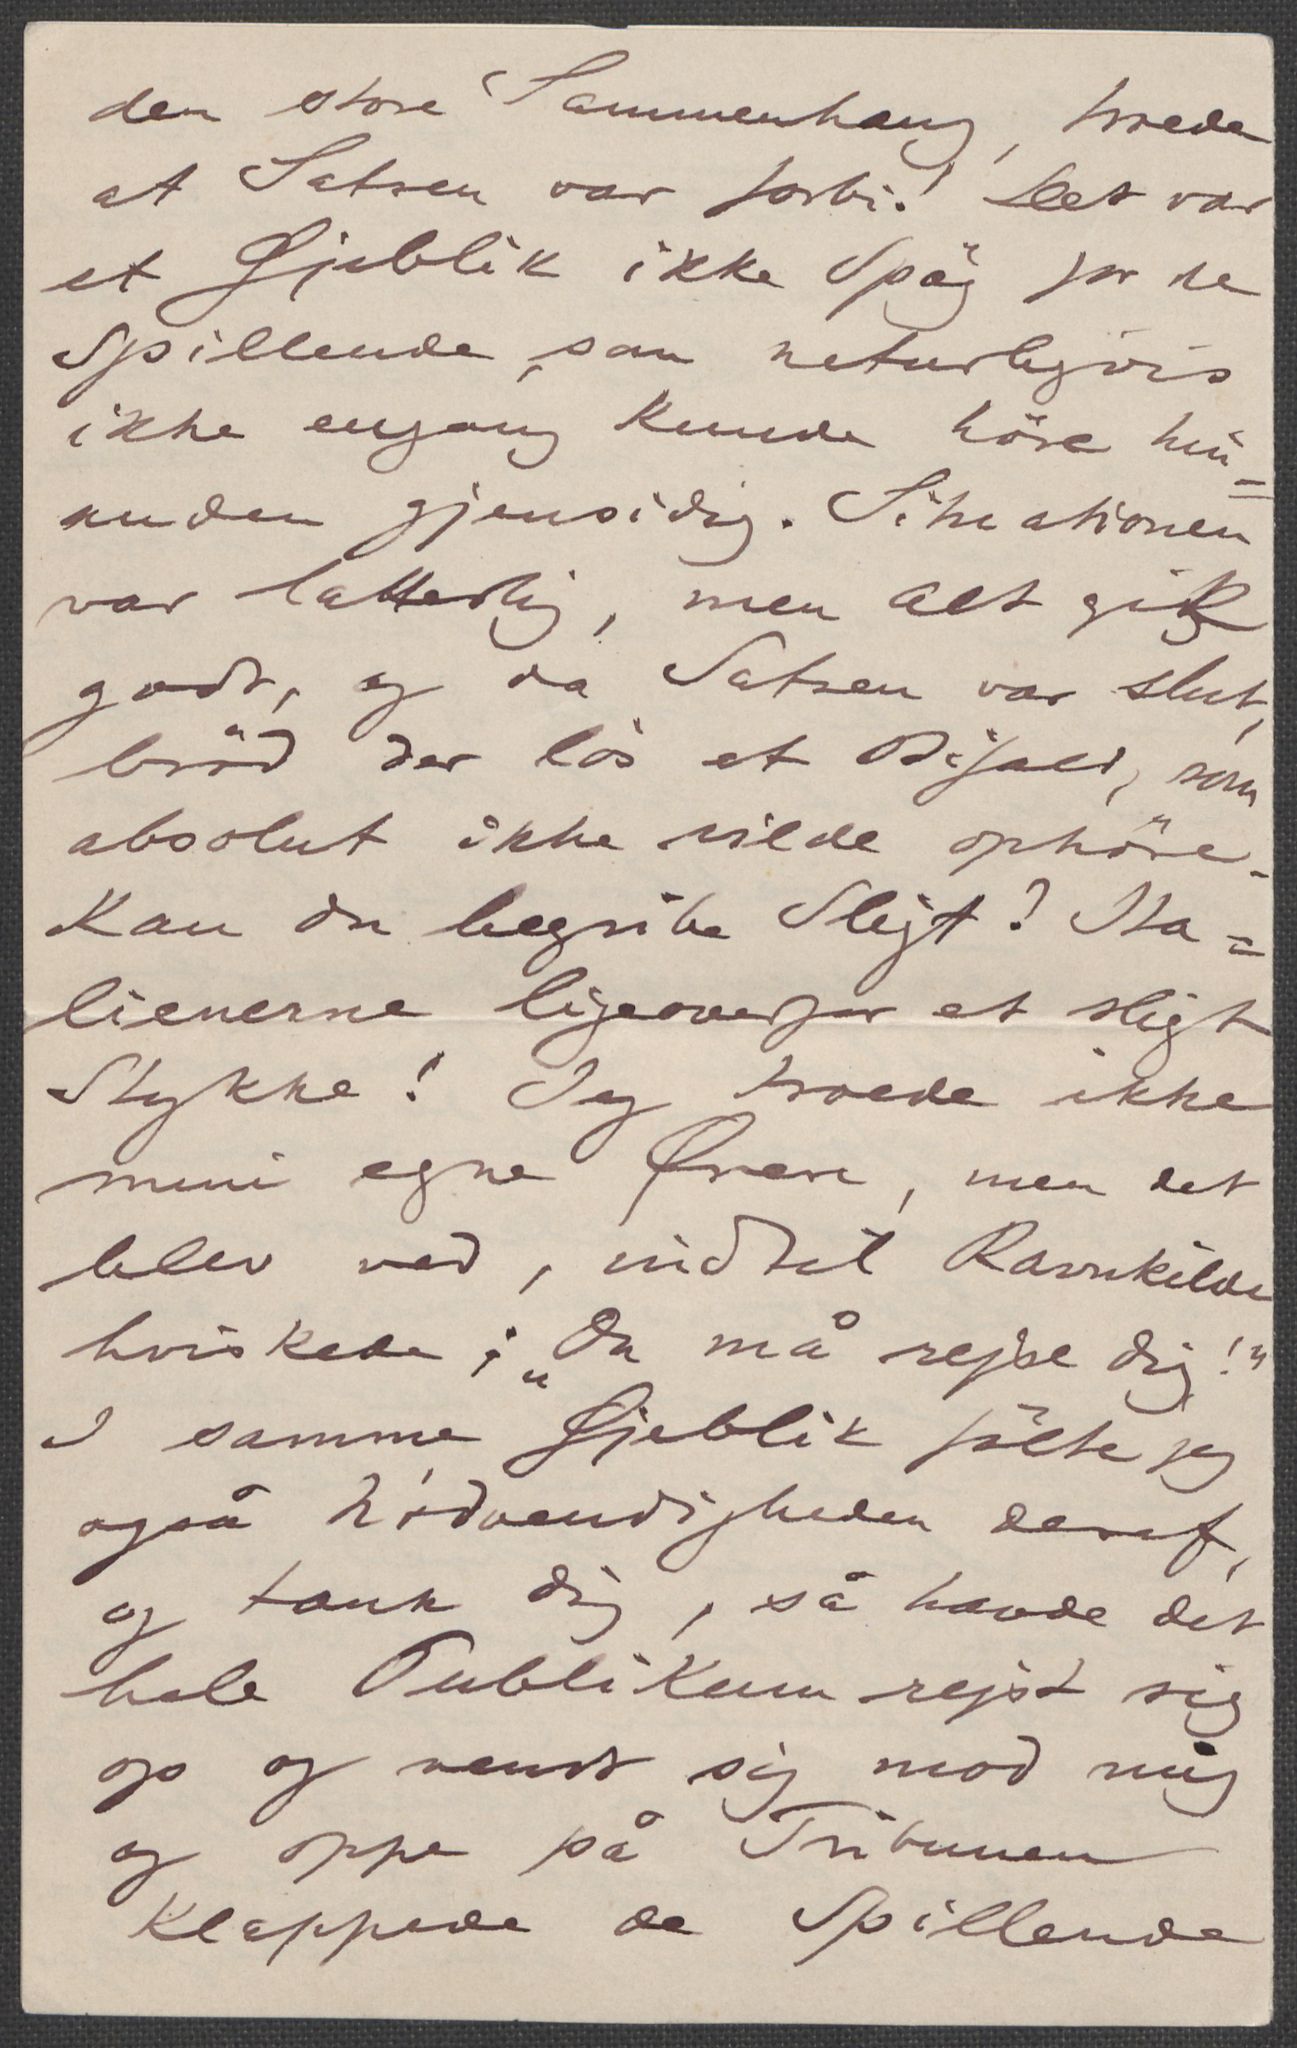 den store Sammenhang, troede
at Satsen var forbi! Det var
et Øjeblik ikke Spög for de
Spillende, som naturligvis
ikke engang kunde höre hin=
anden gjensidig. Situationen
var latterlig, men alt gik
godt, og da Satsen var slut,
bröd der lös et Bifald, som
absolut ikke vilde ophöre.
Kan du begribe Sligt? Ita=
lienerne ligeoverfor et sligt
Stykke! Jeg troede ikke
mine egne Ører, men det
blev ved, indtil Ravnkilde
hviskede: „Du må rejse dig!"
I samme Øjeblik fölte jeg
også Nödvendigheden deraf,
og tænk dig, så havde det
hele Publikum rejst sig
op og vendt sig mod mig
og oppe på Tribunen
klappede de Spillende